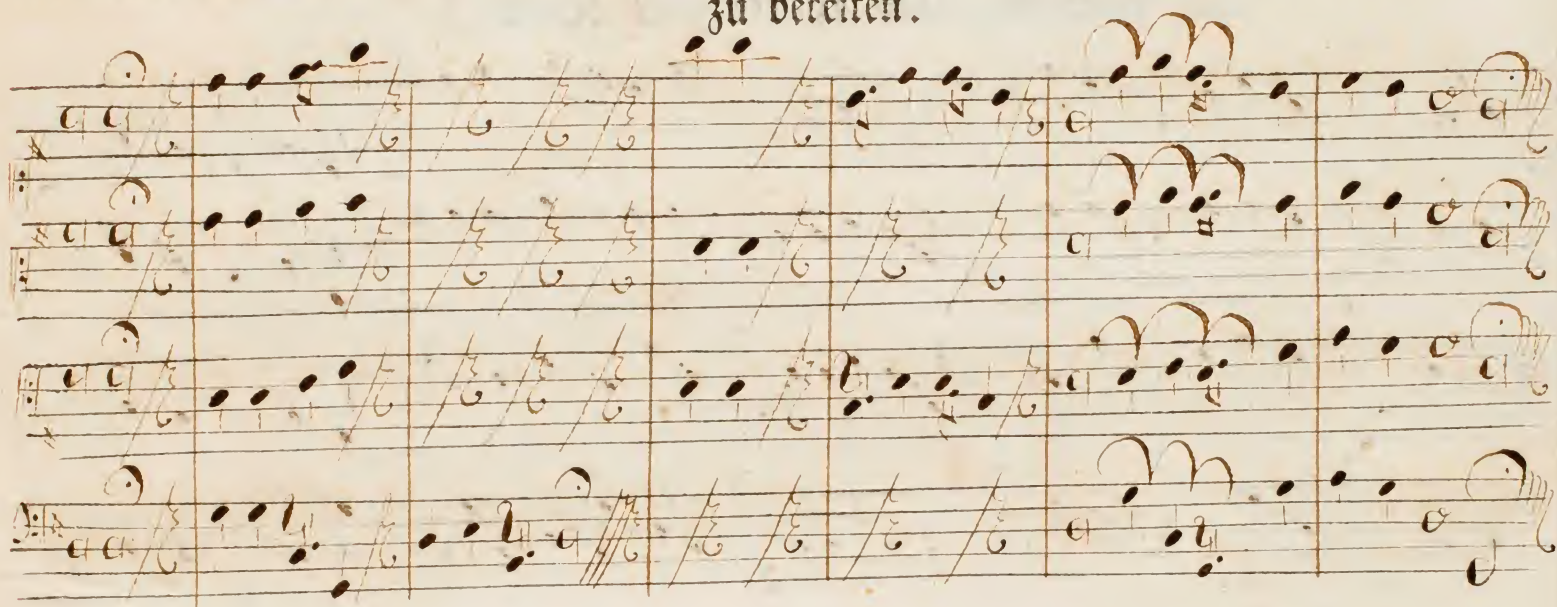 zu bereiten.